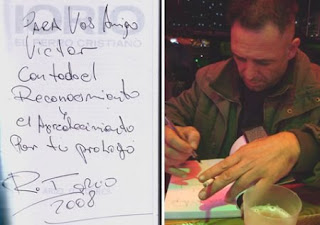 IORIO
EL PERRO CRISTIANO
PARA VOS Amigo
Victor
Con todo el
Reconocimiento
y
el Agradecimiento
Por tu prologo
2008